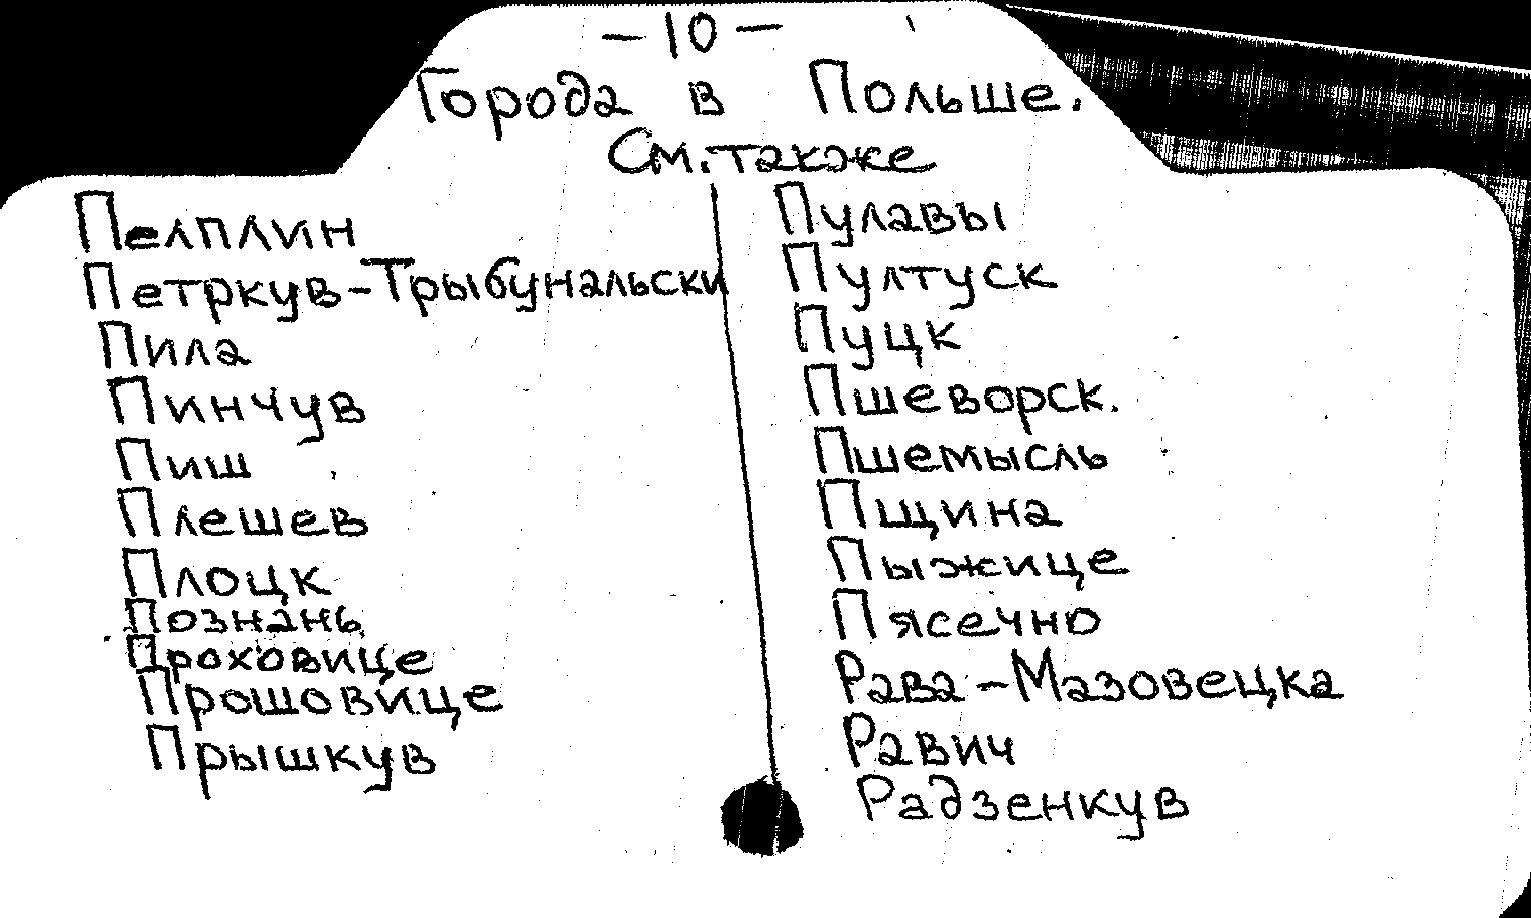 – 10 –
Города в Польше.
См. также
Пелплин
Петркув-Трыбунальски
Пила
Пинчув
Пиш
Плешев
Плоцк
Познань
Проховице
Прошовице
Прышкув
Пулавы
Пултуск
Пуцк
Пшеворск.
Пшемысль
Пщина
Пыжице
Пясечно
Рава-Мазовецка
Равич
Радзенкув